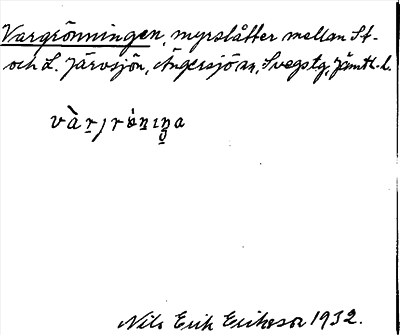 Vargrönningen, myrslåtter mellan St.
och L. Järvsjön, Ängersjö sn, Svegs tg, Jämtl. l.
Nils Erik Eriksson 1932.